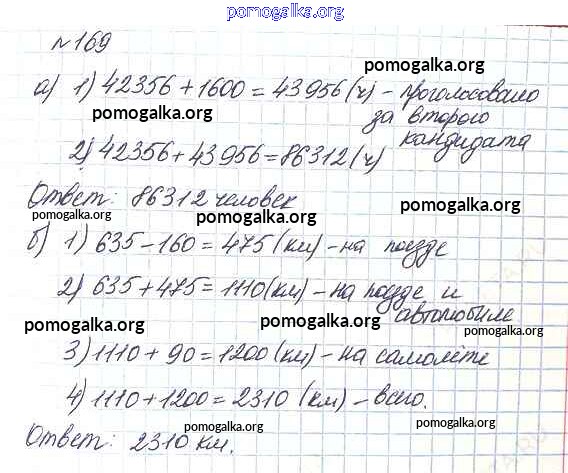 pomogalka.org
№169
pomogalka.org
а) 1) 42356 + 1600 = 43956 (ч) - проголосовано
за второго
pomogalka.org
кандидата
2) 42356 + 43956 = 86312 (ч)
Ответ: 86312 человек
pomogalka.org pomogalka.org pomogalka.org
б) 1) 635 - 160 = 475 (км) - на поезде
2) 635 + 475 = 1110 (км) - на поезде и
автомобиле
pomogalka.org pomogalka.org pomogalka.org
3) 1110 + 90 = 1200 (км) - на самолёте
4) 1110 + 1200 = 2310 (км) - всего.
pomogalka.org
Ответ: 2310 км.
pomogalka.org